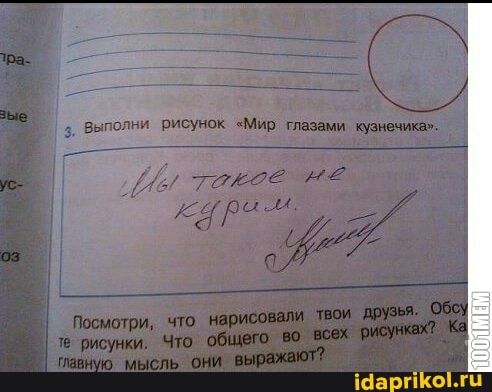 пра-
вые
ус-
оз
3. Выполни рисунок «Мир глазами кузнечика».
Мы такое не
курим.
Посмотри, что нарисовали твои друзья. Обсу
те рисунки. Что общего во всех рисунках? Ка
главную мысль они выражают?
1001MEM
idaprikol.ru